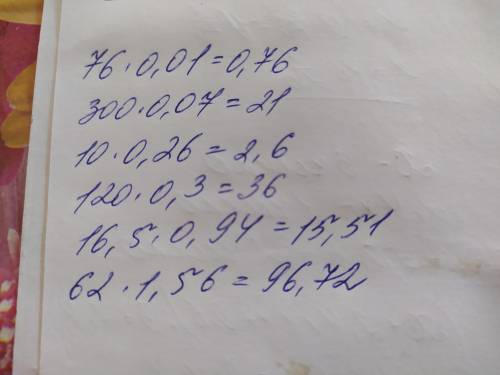 76·0,01=0,76
300·0,07=21
10·0,26=2,6
120·0,3=36
16,5·0,94=15,51
62·1,56=96,72